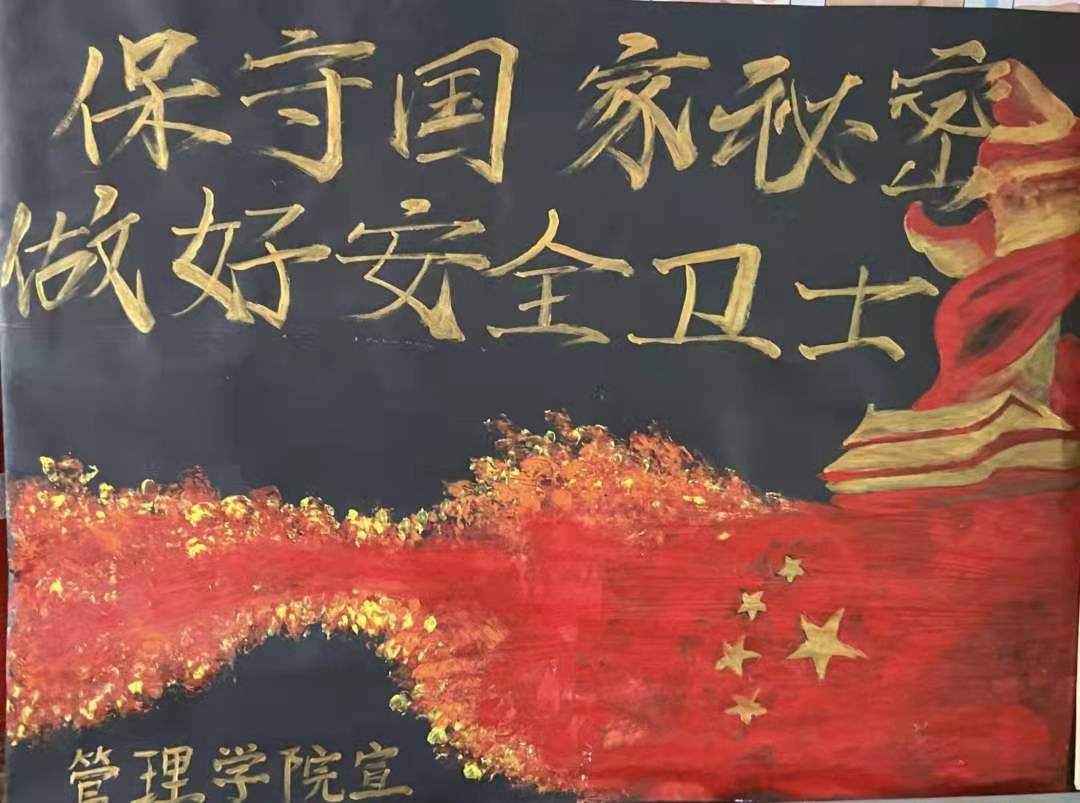 保守国家秘密
做好安全卫士
管理学院宣